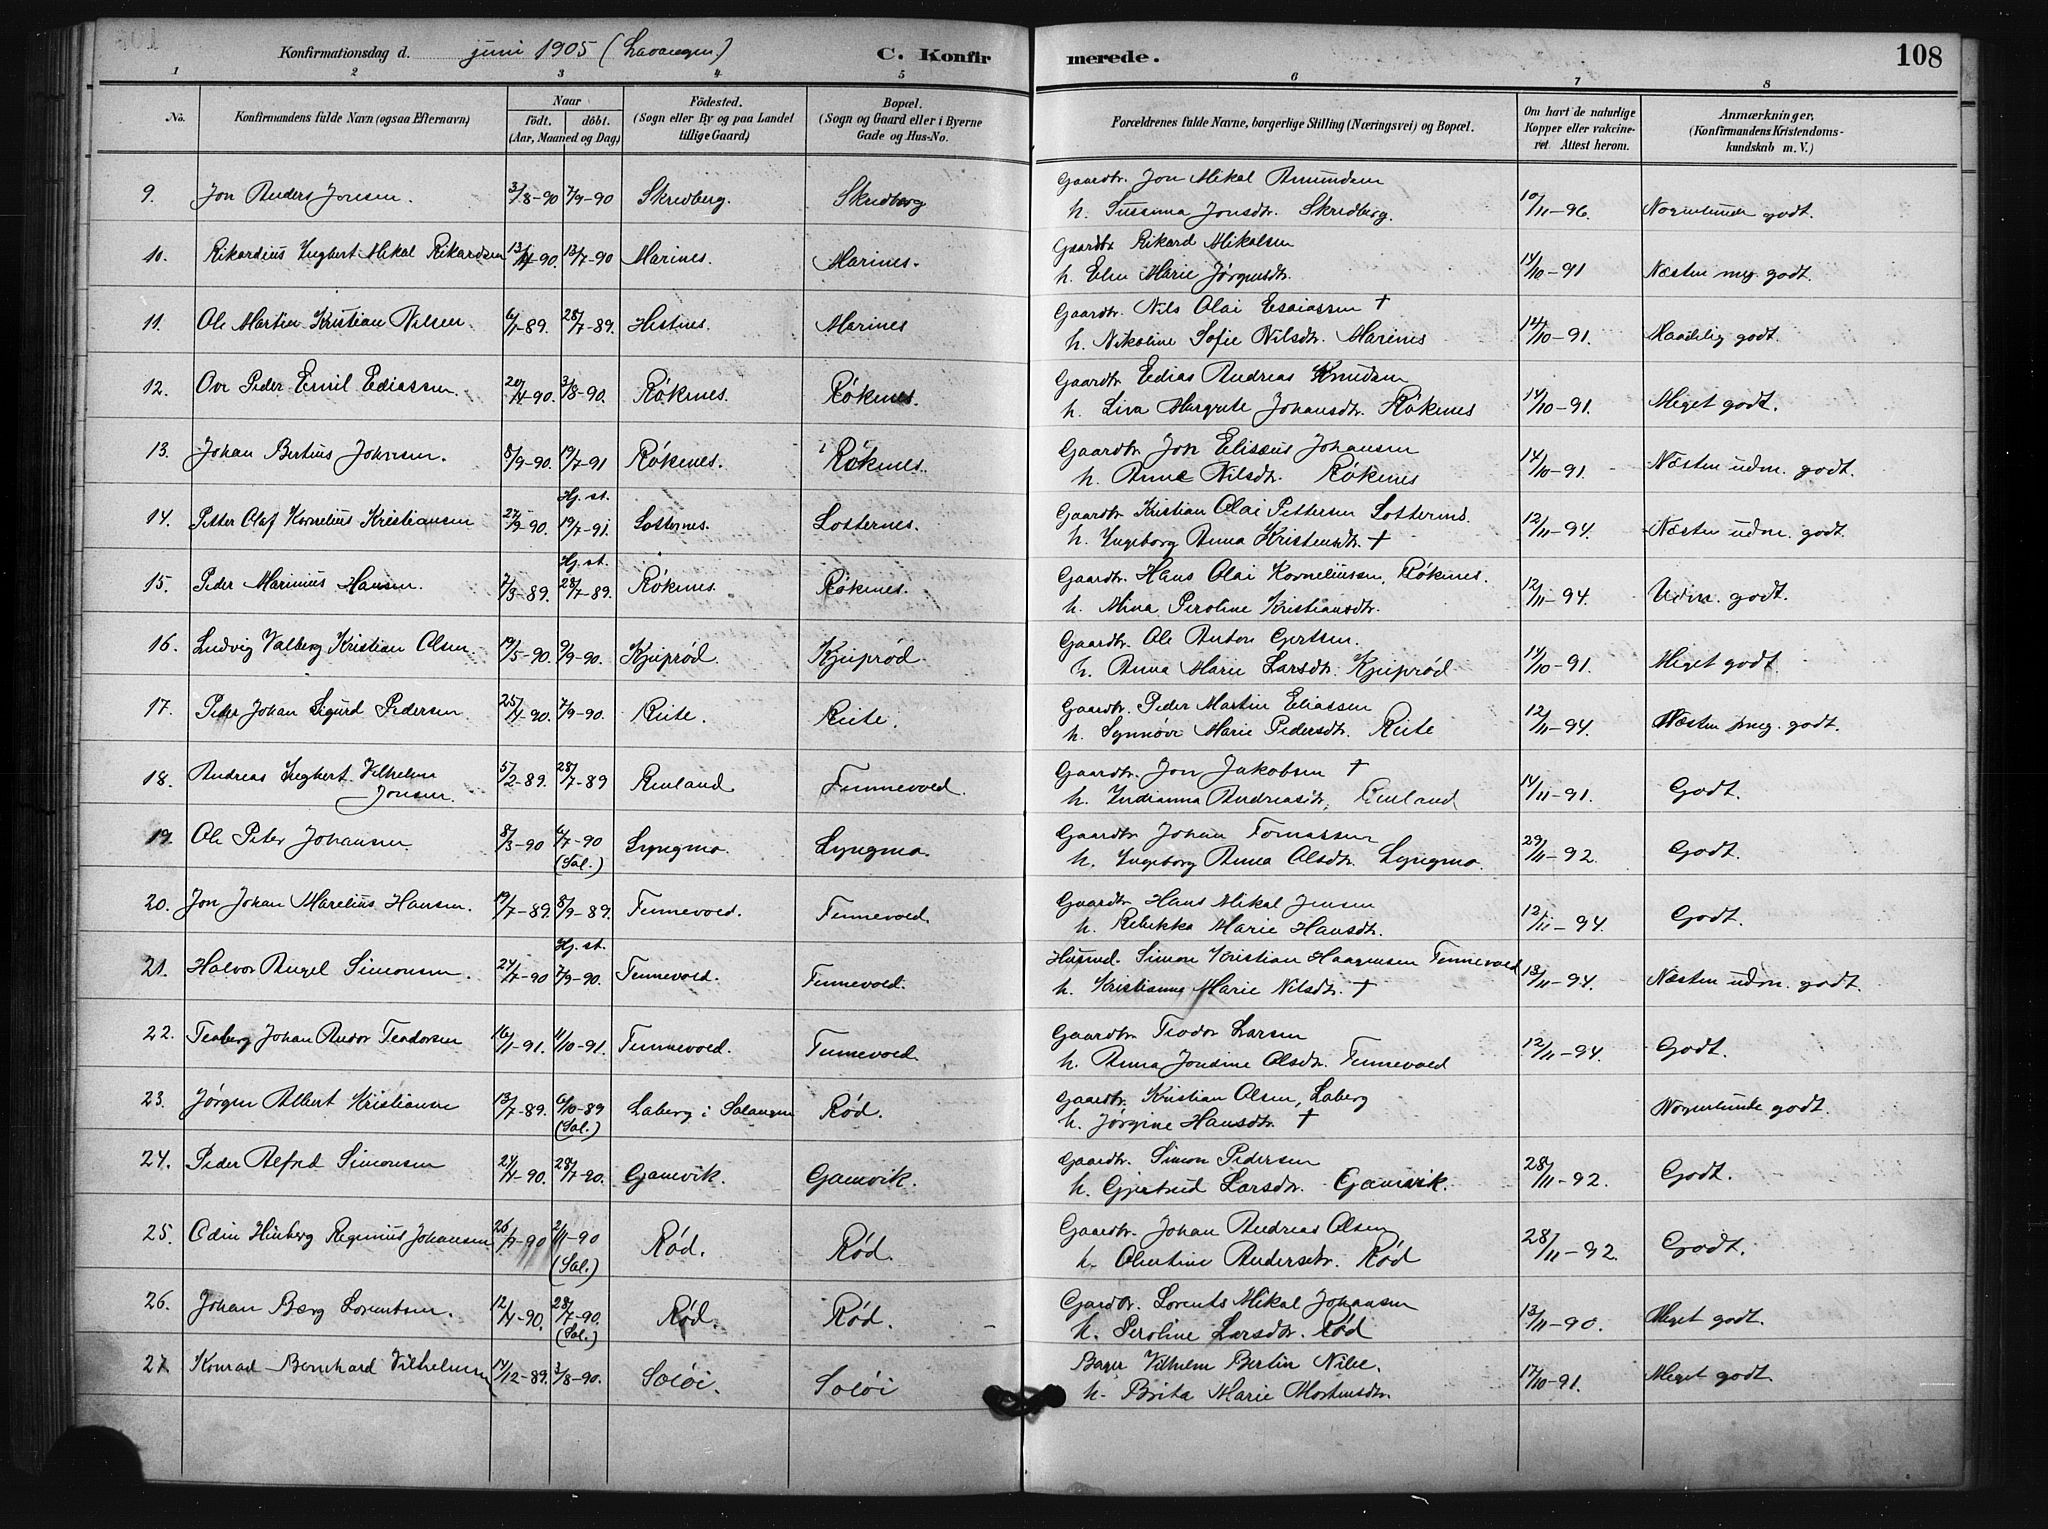 Konfirmationsdag d. juni 1905 (Lavangen) C. Konfirmerede. 108
1 2 3 4 5 6 7 8
No. Konfirmandens fulde Navn (ogsaa Efternavn) Naar født. døbt. (Aar, Maaned og Dag) Fødested. (Sogn eller By og paa Landet tillige Gaard) Bopæl. (Sogn og Gaard eller i Byerne Gade og Hus-No. Forældrenes fulde Navne, borgerlige Stilling (Næringsvei) og Bopæl. Om havt de naturlige Kopper eller vakcineret. Attest herom. Anmærkninger. (Konfirmandens Kristendomskundskab m. V.)
9. Jon Anders Jonsen. 3/8-90 7/9-90 Skredberg. Skredberg Gaardbr. Jon Mikal Amundsen
h. Jonsdtr. Skredberg. 10/11-96. godt.
10. Rikardius Ingbert Mikal Rikardsen 13/4-90. 13/7-90 Marines. Marines. Gaardbr. Rikard Mikalsen
h. Elen Marie Jørgensdtr. 14/10-91 Næsten meg. godt.
11. Ole Martin Kristian Nilsen. 6/1-89. 28/7-89. Histnes. Marines Gaardbr. Nils Olai Esaiassen †
h. Nikoline Sofie Nilsdtr. Marines 14/10-91. Maadelig godt.
12. Ove Peder Emil Ediassen. 20/4-90. 3/8-90. Røkenes. Røkenes. Gaardbr. Edias Andreas Knudsen
h. Liva Margrete Johansdtr. Røkenes 14/10-91. Meget godt.
13. Johan Bertius Johnsen. 8/9-90. 19/7-91 Røkenes. Røkenes. Gaardbr. Jon Elisæus Johansen
h. Anne Nilsdtr. Røkenes 14/10-91. Næsten udm. godt.
14. Petter Olaf Kornelius Kristiansen 27/9-90. Hj. st. 19/7-91. Lotternes. Lotternes. Gaardbr. Kristian Olai Pettersen Lotternes.
h. Ingeborg Anna Kristensdtr. † 12/11-94. Næsten udm. godt.
15. Peder Marinius Hansen. 7/3-89. Hj. st. 28/7-89. Røkenes. Røkenes. Gaardbr. Hans Olai Korneliussen, Røkenes.
h. Mina Peroline Kristiansdtr. 12/11-94. Udm. godt.
16. Ludvig Valberg Kristian Olsen 19/5-90. 9/9-90. Kjeiprød. Kjeiprød. Gaardbr. Ole Anton Gjertsen.
h. Anna Marie Larsdtr. Kjeiprød 14/10-91. Meget godt.
17. Peder Johan Sigurd Pedersen. 25/4-90. 7/9-90. Reite. Reite. Gaardbr. Peder Martin Eliassen
h. Synnøve Marie Pedersdtr. Reite 12/11-94. Næsten meg. godt.
18. Andreas Ingbert Vilhelm Jonsen. 5/2-89. 28/7-89 Renland Tennevold. Gaardbr. Jon Jakobsen †
h. Indianna Andreasdtr, Renland 14/11-91. Godt.
19. Ole Peter Johansen. 8/3-90 6/7-90 (Sal.) Lyngmo. Lyngmo. Gaardbr. Johan Tomassen
h. Ingeborg Anna Olsdtr. Lyngmo. 29/11-92. Godt.
20. Jon Johan Marelius Hansen. 19/7-89. 8/9-89. Tennevold. Tennevold. Gaardbr. Hans Mikal Jensen
h. Rebekka Marie Hansdtr. 12/11-94. Godt.
21. Halvor Angel Simonsen. 24/7-90 Hj. st. 7/9-90. Tennevold. Tennevold. Husmd. Simon Kristian Haagensen Tennevold
h. Kristianna Marie Nilsdtr. † 13/11-94. Næsten udm. godt.
22. Teaberg Johan Andor Teodorsen 16/1-91. 11/10-91. Tennevold. Tennevold. Gaardbr. Teodor Larsen
h. Anna Jondine Olsdtr. Tennevold 12/11-94. Godt.
23. Jørgen Albert Kristiansen 13/7-89. 6/10-89 (Sal.) Laberg i Salangen Rød. Gaardbr. Kristian Olsen, Laberg
h. Jørgine Hansdtr. † Nogenlunde godt.
24. Peder Alfred Simonsen 24/4-90. 28/7-90. Gamvik. Gamvik. Gaardbr. Simon Pedersen
h. Gjertrud Larsdtr. Gamvik. 28/11-92. Godt.
25. Odin Hinberg Reginius Johansen 26/7-90 2/11-90 (Sal.) Rød. Rød. Gaardbr. Johan Andreas Olsen
h. Olertine Andersdtr. Rød 28/11-92. Godt.
26. Johan Berg Lorentsen. 12/4-90. 28/7-90. (Sal.) Rød. Rød. Gardbr. Lorents Mikal Johansen
h. Peroline Larsdtr. Rød 13/11-90. Meget godt.
27. Konrad Bernhard Vilhelmsen 14/12-89. 3/8-90. Soløi. Soløi Bager Vilhelm Bertin
h. Brita Marie Mortensdtr. 17/10-91. Meget godt.